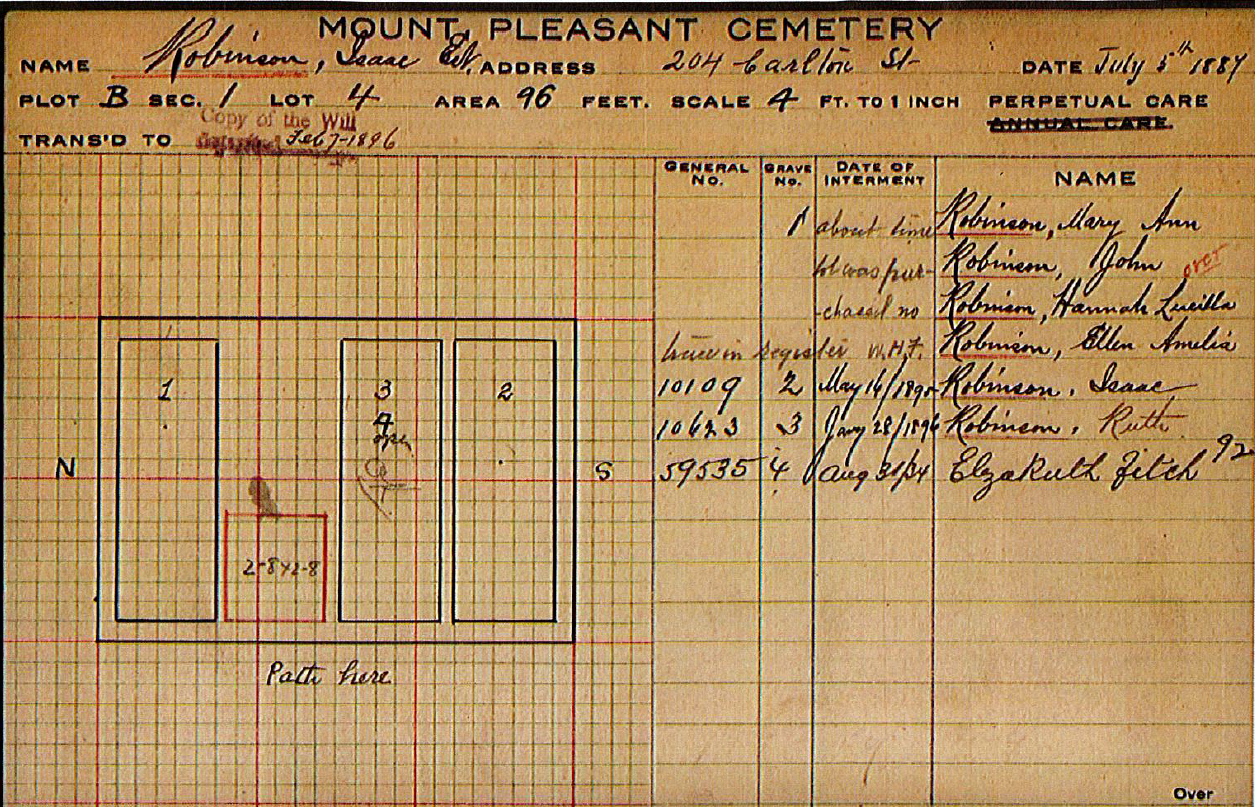 MOUNT PLEASANT CEMETERY
NAME Robinson, Isaac Est. ADDRESS 204 Carlton St DATE July 5th 1887
PLOT B SEC. 1 LOT 4 AREA 96 FEET. SCALE 4 FT. TO 1 INCH PERPETUAL CARE
ANNUAL CARE.
Copy of the Will
TRANS'D TO Feb 7-1896
GENERAL No. GRAVE No. DATE OF INTERMENT NAME
1 about time Robinson, Mary Ann
lot was pur- Robinson, John over
-chased no Robinson, Hannah Lucilla
trace in register W.H.F. Robinson, Ellen Amelia
10109 2 May 16/189 Robinson, Isaac
10623 3 Jany 28/1896 Robinson, Ruth
59535 4 Aug 31/34 Elza Ruth Fitch 92
1 3 2
4
open
N S
2-8x2-8
Path here
Over